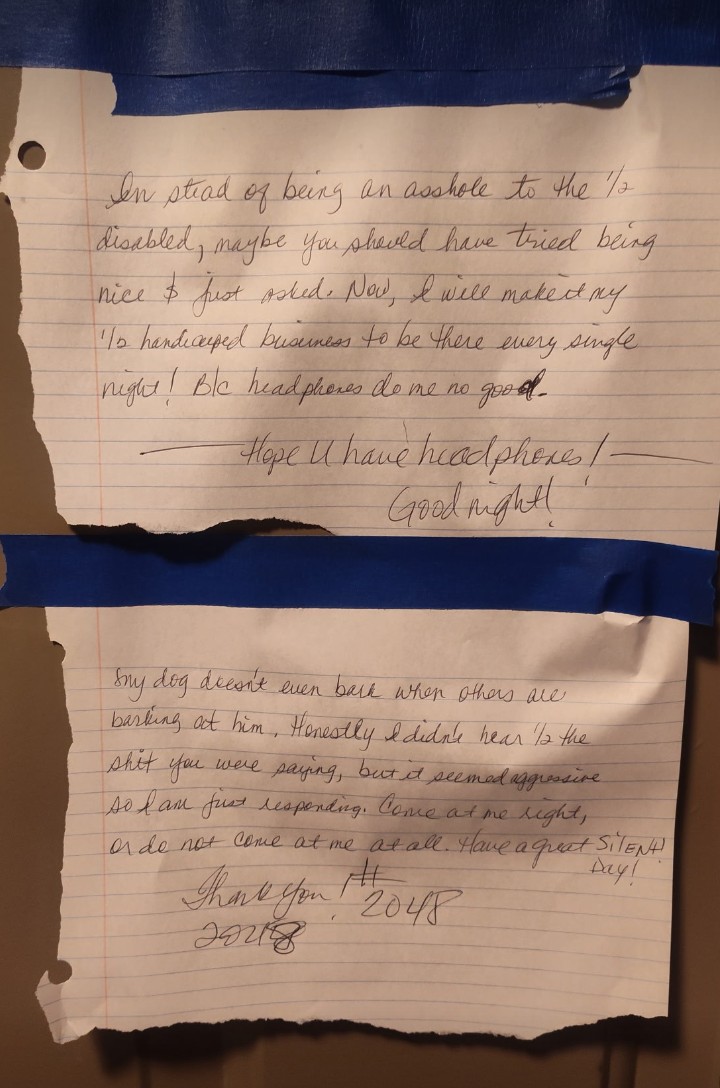 In stead of being an asshole to the 1/2
disabled, maybe you should have tried being
nice & just asked. Now, I will make it my
1/2 handicapped business to be there every single
night! B/c headphones do me no good.
Hope U have headphones!
Good night!
My dog doesn't even bark when others are
barking at him. Honestly I didn't hear 1/2 the
shit you were saying, but it seemed aggressive
so I am just responding. Come at me right,
or do not come at me at all. Have a great SiLENt
Day!
Thank you! # 2048